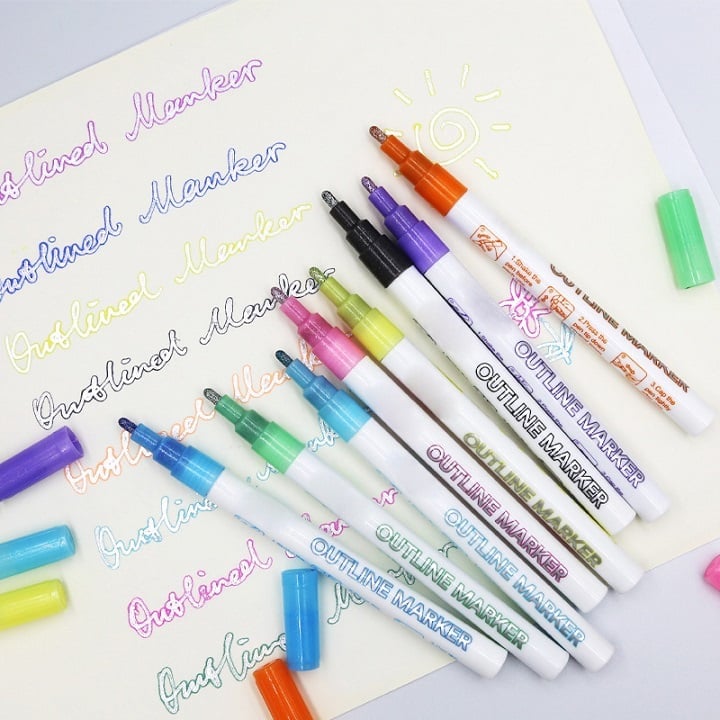 utlined Marker
Outlined Marker
Outlined Marker
Outlined Marker
Outlined
Outlined
Outlined Marker
Outlined
1.Shake the
pen before
2.Press the
pen tip down
3.Cap the
pen tightly
OUTLINE MARKER
OUTLINE MARKER
OUTLINE MARKER
OUTLINE MARKER
OUTLINE MARKER
OUTLINE MARKER
OUTLINE MARKER
OUTLINE MARKER